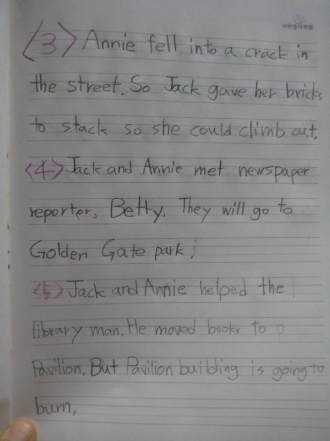 <3> Annie fell into a crack in
the street. So Jack gave her bricks
to stack so she could climb out.
<4> Jack and Annie met newspaper
reporter, Betty. They will go to
Golden Gate park!
<5> Jack and Annie helped the
library man. He moved books to
Pavilion. But Pavilion building is going to
burn,